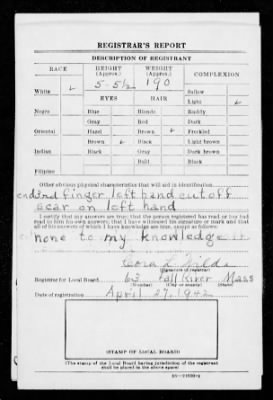 REGISTRAR'S REPORT
DESCRIPTION OF REGISTRANT
RACE HEIGHT (Approx.) WEIGHT (Approx.) COMPLEXION
White 5-5½ 190 Sallow
EYES HAIR Light
Negro Blue Blonde Ruddy
Gray Red Dark
Oriental Hazel Brown Freckled
Brown Black Light brown
Indian Black Gray Dark brown
Bald Black
Filipino
Other obvious physical characteristics that will aid in identification
end 3rd finger left hand cut off
scar on left hand
I certify that my answers are true; that the person registered has read or has had
read to him his own answers; that I have witnessed his signature or mark and that
all of his answers of which I have knowledge are true, except as follows:
none to my knowledge
Cora L. Wilde
(Signature of registrar)
Registrar for Local Board 63 Fall River Mass
(Number) (City or county) (State)
Date of registration April 27, 1942
STAMP OF LOCAL BOARD
(The stamp of the Local Board having jurisdiction of the registrant
shall be placed in the above space.)